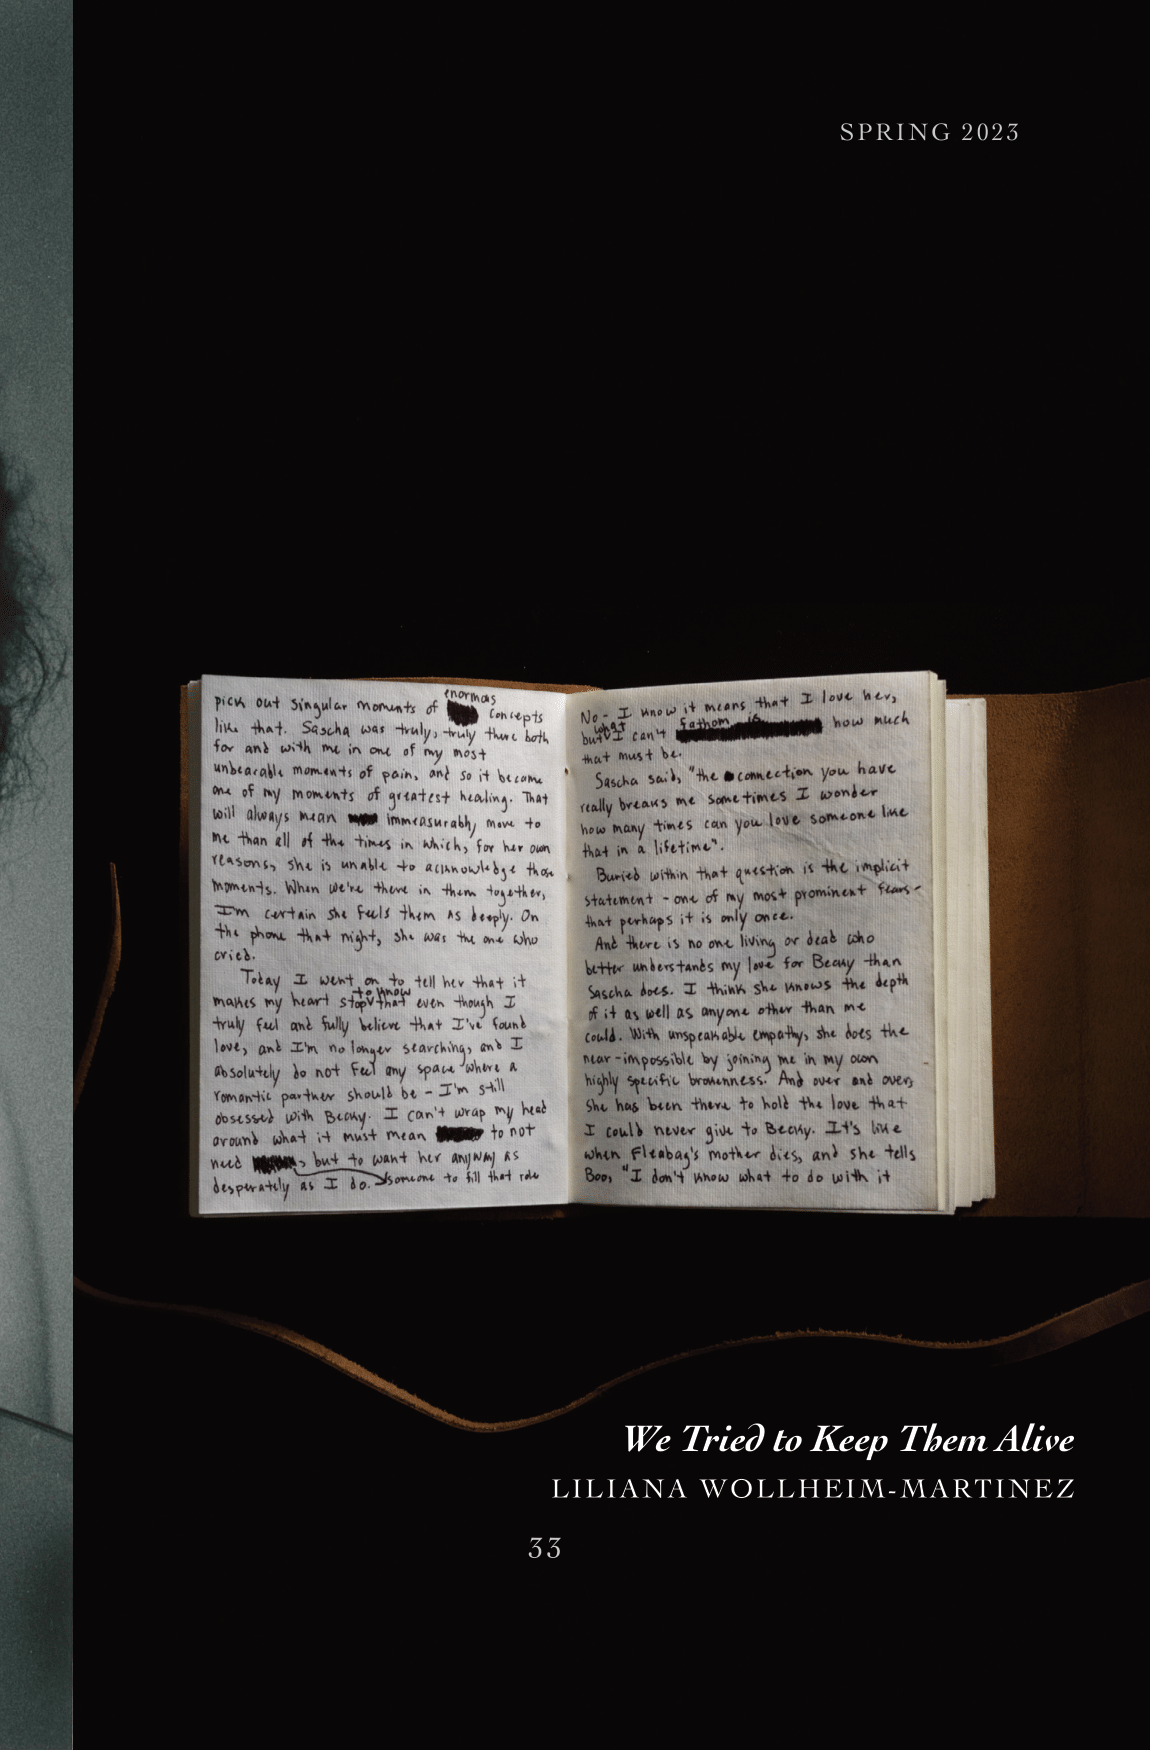 SPRING 2023
enormous
pick out singular moments of concepts
like that. Sascha was truly, truly there both
for and with me in one of my most
unbearable moments of pain, and so it became
one of my moments of greatest healing. That
will always mean immeasurably more to
me than all of the times in which, for her own
reasons, she is unable to acknowledge those
moments. When we're there in them together,
I'm certain she feels them as deeply. On
the phone that night, she was the one who
cried.
Today I went on to tell her that it
to know
makes my heart stop that even though I
truly feel and fully believe that I've found
love, and I'm no longer searching, and I
absolutely do not feel any space where a
romantic partner should be - I'm still
obsessed with Becky. I can't wrap my head
around what it must mean to not
need , but to want her anyway as
desperately as I do. someone to fill that role
No - I know it means that I love her,
what fathom is
but I can't how much
that must be.
Sascha said, "the connection you have
really breaks me sometimes I wonder
how many times can you love someone like
that in a lifetime".
Buried within that question is the implicit
statement - one of my most prominent fears -
that perhaps it is only once.
And there is no one living or dead who
better understands my love for Becky than
Sascha does. I think she knows the depth
of it as well as anyone other than me
could. With unspeakable empathy, she does the
near-impossible by joining me in my own
highly specific brokenness. And over and over,
she has been there to hold the love that
I could never give to Becky. It's like
when Fleabag's mother dies, and she tells
Boo, "I don't know what to do with it
We Tried to Keep Them Alive
LILIANA WOLLHEIM-MARTINEZ
33